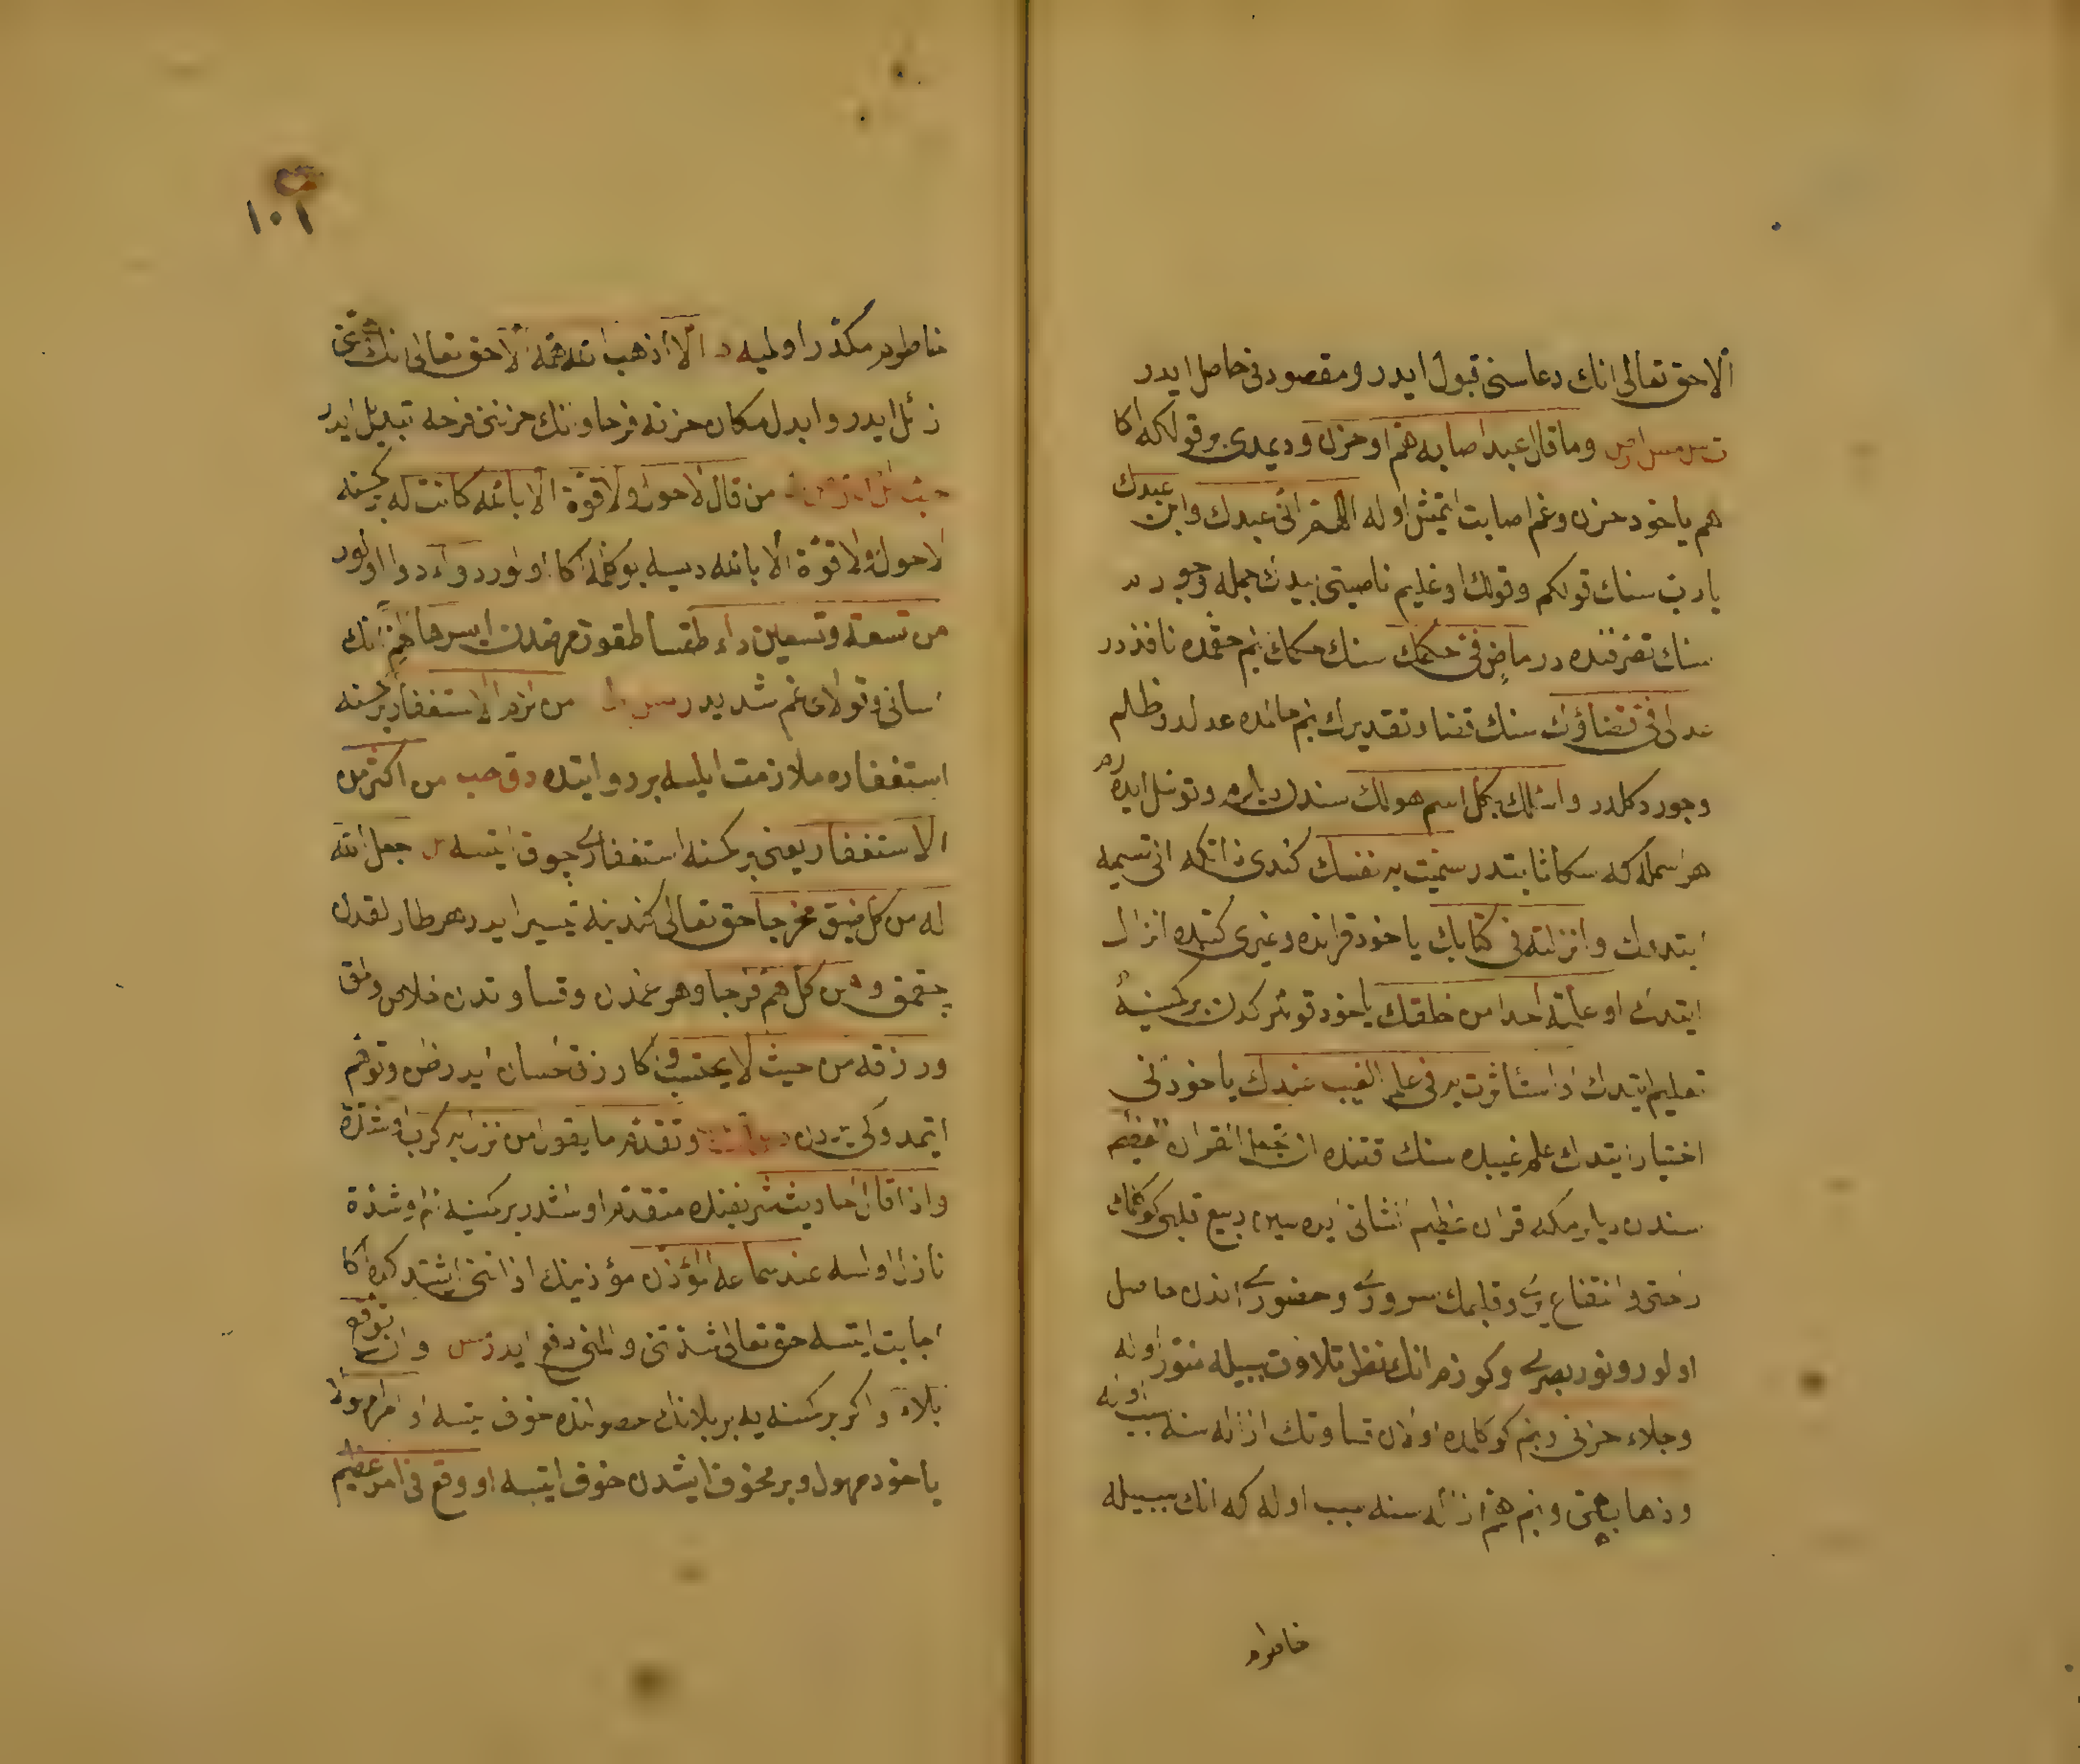 الا حق تعالی انك دعاسنی قبول ایدر و مقصودنی حاصل ایدر
وما قال عبد اصابه هم او حزن و دیمدی بر قول که اکا
هم یا خود حزن و غم اصابت ایتمش اوله اللهم انی عبدك وابن عبدك
یا رب سنك قولکم و قولك اوغلیم ناصیتی بیدك جمله وجودم
سنك تصرفنده در ماض فی حکمك سنك حکمك بنم حقمده نافذدر
عدل فی قضاؤك سنك قضا و تقدیرك بنم حقمده عدلدر و ظلم
وجور دکلدر واسئلك بکل اسم هو لك سندن دیلرم و توسل ایدرم
هر اسمله که سکا ثابتدر سمیت به نفسك کندی ذاتکه انی تسمیه
ایتدك وانزلته فی کتابك یا خود قرانده و غیری کتبده انزال
ایتدك او علمته احدا من خلقك یا خود قوللرکدن بر کمسنه‌یه
تعلیم ایتدك او استأثرت به فی علم الغیب عندك یا خود انی
اختیار ایتدك علم غیبده سنك قتنده ان تجعل القران العظیم
سندن دیلرمکه قران عظیم الشانی ایده‌سین ربیع قلبی کوکلمك
راحتی و انتفاع یری و قلبمك سروری و حضوری اندن حاصل
اولور و نور بصری و کوزم انك نظر تلاوت سببیله منور اوله
وجلاء حزنی و بنم کوکلمده اولان قساوتك ازاله سنه سبب اوله
وذهاب همی و بنم همم ازاله سنه سبب اوله که انك سببیله
خاطرم
١٠١
خاطرم مکدر اولمیه الا اذهب الله همه الا حق تعالی انك غمنی
زائل ایدر وابدل مکان حزنه فرحا و انك حزننی فرحه تبدیل ایدر
من قال لا حول ولا قوة الا بالله کانت له بر کمسنه
لا حول ولا قوة الا بالله دیسه بو کلمه اکا اولور دواء دوا اولور
من تسعة وتسعین داء طقسان طقوز مرضدن ایسرها الهم انك
اسانی و قولایی غم شدیددر من لزم الاستغفار بر کمسنه
استغفاره ملازمت ایلسه بر روایتده دق حب من اکثر من
الاستغفار یعنی بر کمسنه استغفاری چوق ایتسه جعل الله
له من کل ضیق مخرجا حق تعالی کندینه میسر ایدر هر طارلقدن
چقمق و من کل هم فرجا و هر غمدن و قساوتدن خلاص و
ورزقه من حیث لا یحتسب و اکا رزق احسان ایدر ظن و توهم
ایتمدوکی یردن وتقدم ما یقول من نزل به کرب او شدة
واذا قال احادیث شریفه‌ده متقدم اولمشدر بر کمسنه‌یه غم و شدة
نازل اولسه عند سماعه المؤذن مؤذنك اذاننی اشتدکده اکا
اجابت ایتسه حق تعالی شدتنی و المنی دفع ایدر وان توقع
بلاء و اکر بر کمسنه‌یه بر بلانك حصولنده خوف ایتسه او امرا مهولا
یا خود مهول و بر مخوف ایشدن خوف ایتسه او وقع فی امر عظیم